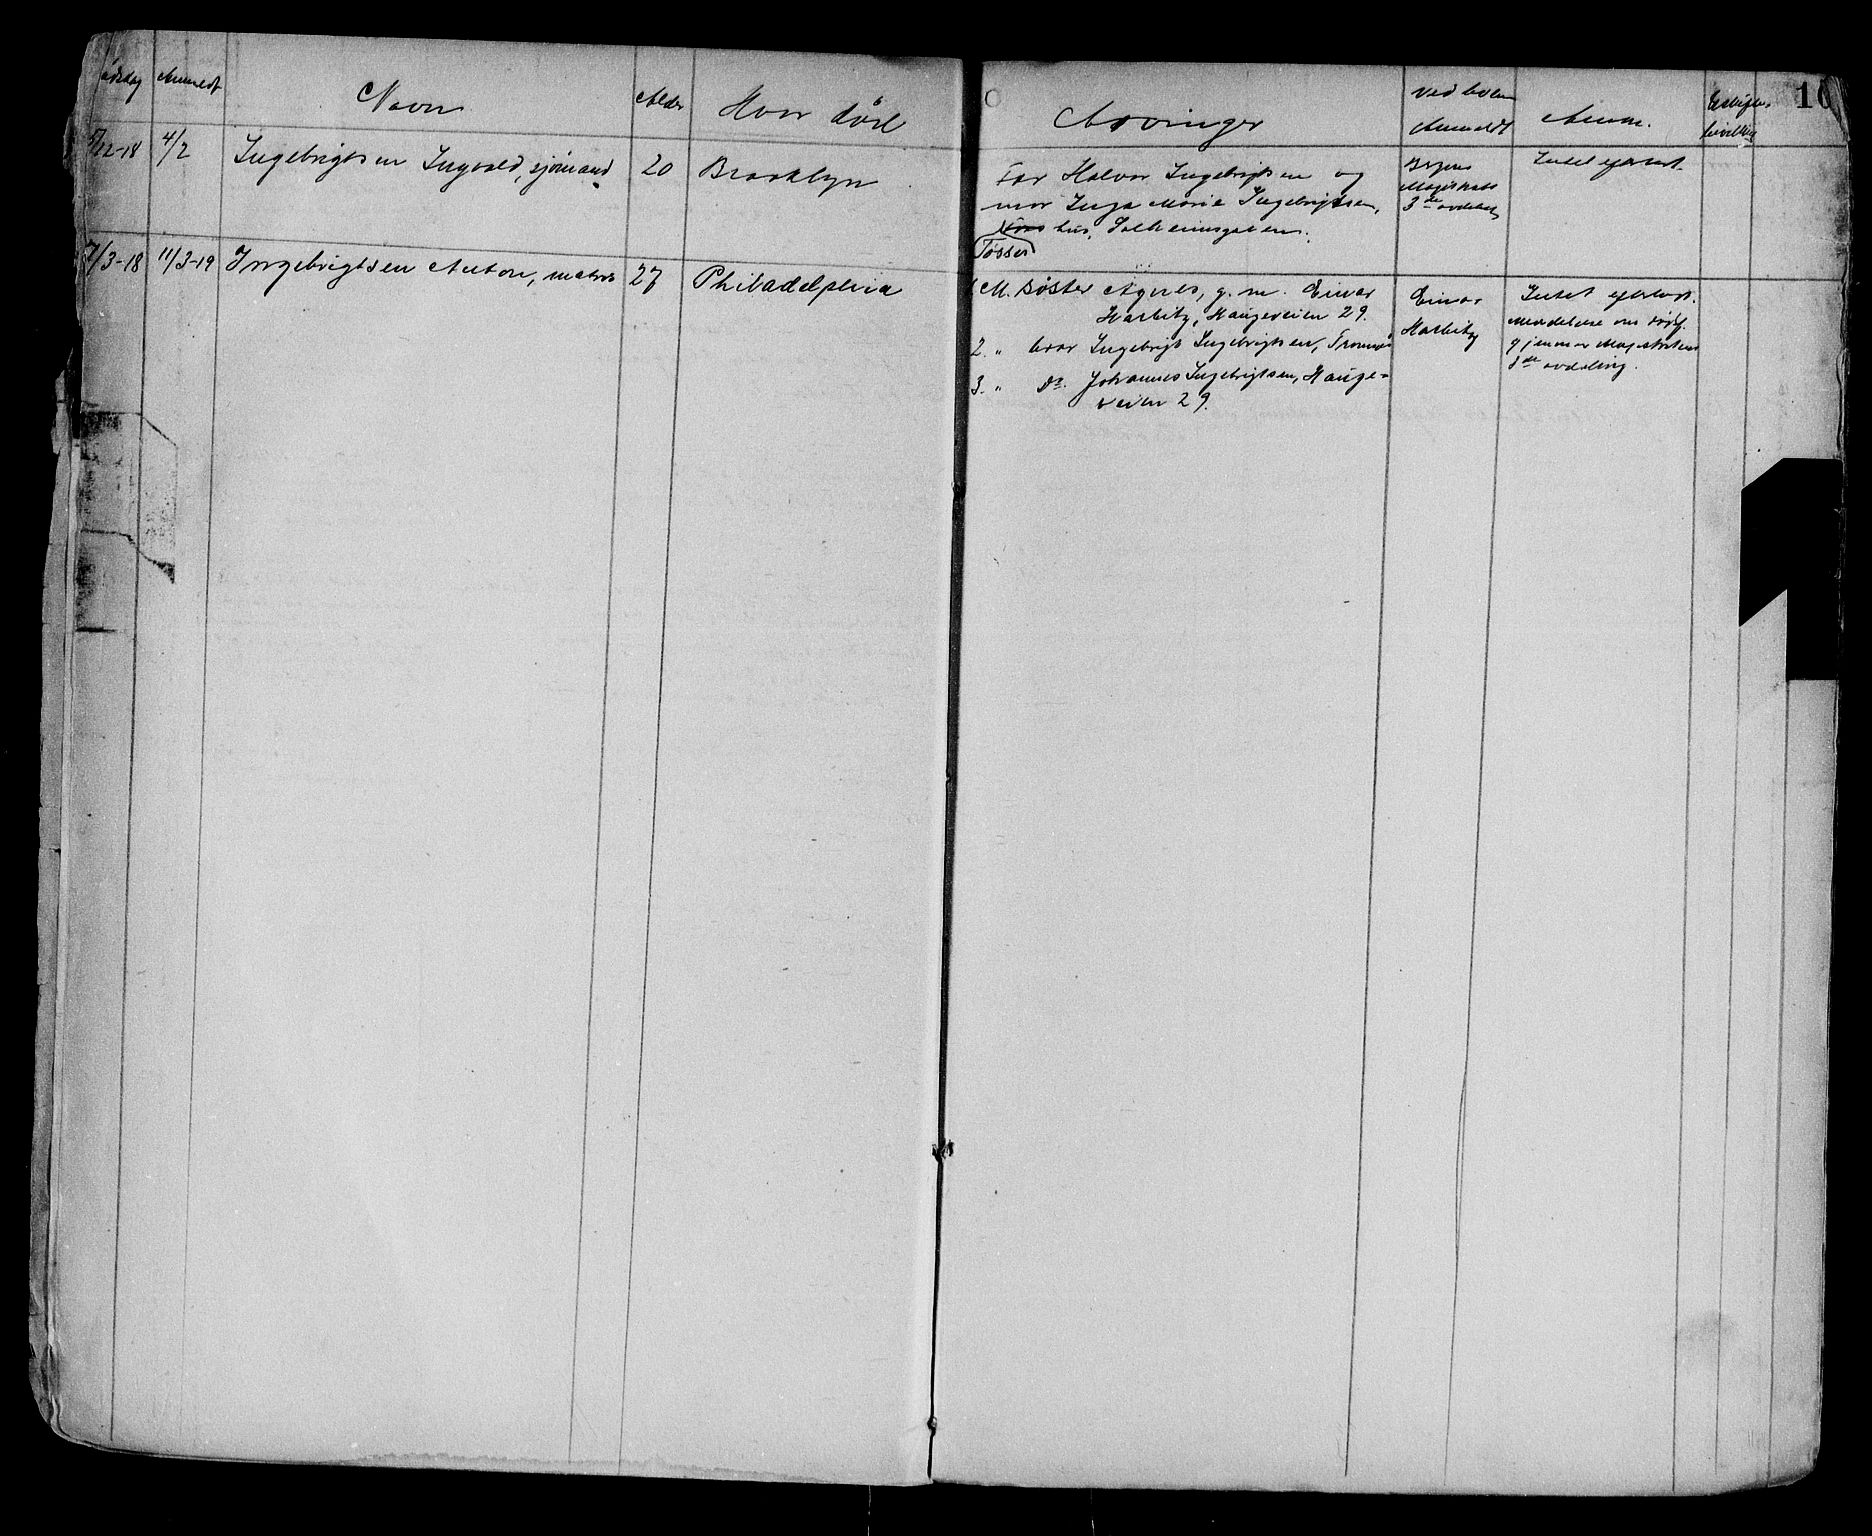 Anmeldt Navn Alder Hvor død Arvinger Ved hvem Anmeldt Anm. 10
/12-18 4/2 Ingebrigtsen Ingvald, sjømand 20 Brooklyn
Far Halvor Ingebrigtsen og
mor Inga Marie Ingebrigtsen,
hus, Solheimsgaten.
Tøsse
Bergens
Magistrats
3de avdeling
Intet efterladt.
7/3-18 11/3-19 Ingebrigtsen Anton, matros 27 Philadelphia
1. M. søster Agnes, g. m. Einar
Harbitz, Haugeveien 29.
2. " bror Ingebrigt Ingebrigtsen, Tromsø
3. " Do. Johannes Ingebrigtsen, Hauge-
veien 29.
Einar
Harbitz
Intet efterladt.
Meddelelse om dødsf.
gjennem Magistratens
avdeling.